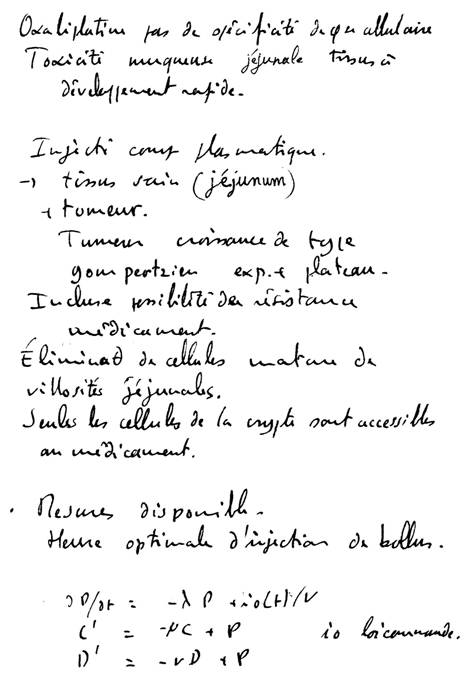 Oxaliplatine pas de spécificité de φ cellulaire
Toxicité muqueuse jéjunale tissus à
développement rapide.
Injecté comp plasmatique.
→ tissus sain (jéjunum)
+ tumeur.
Tumeur croissance de type
gompertzien exp. + plateau.
Incluse possibilité de résistance
médicament.
Éliminat° de cellules mature de
villosités jéjunales.
Seules les cellules de la crypte sont accessibles
au médicament.
. Mesures disponible.
Heure optimale d'injection de bollus.
∂P/∂t = -λ P + io(t)/V
C' = -μC + P io loi commande.
D' = -νD + P